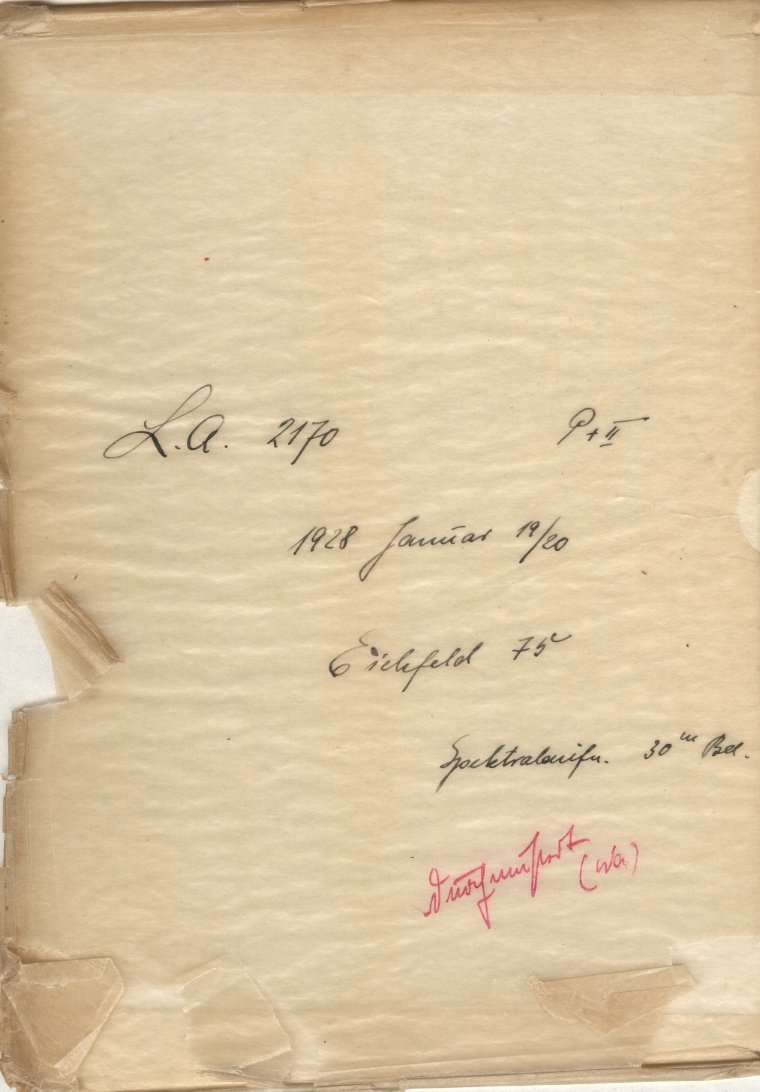 L.A. 2170 P+II
1928 Januar 19/20
Eichfeld 75
Spektralaufn. 30m Bel.
Durchgemustert (Wa)